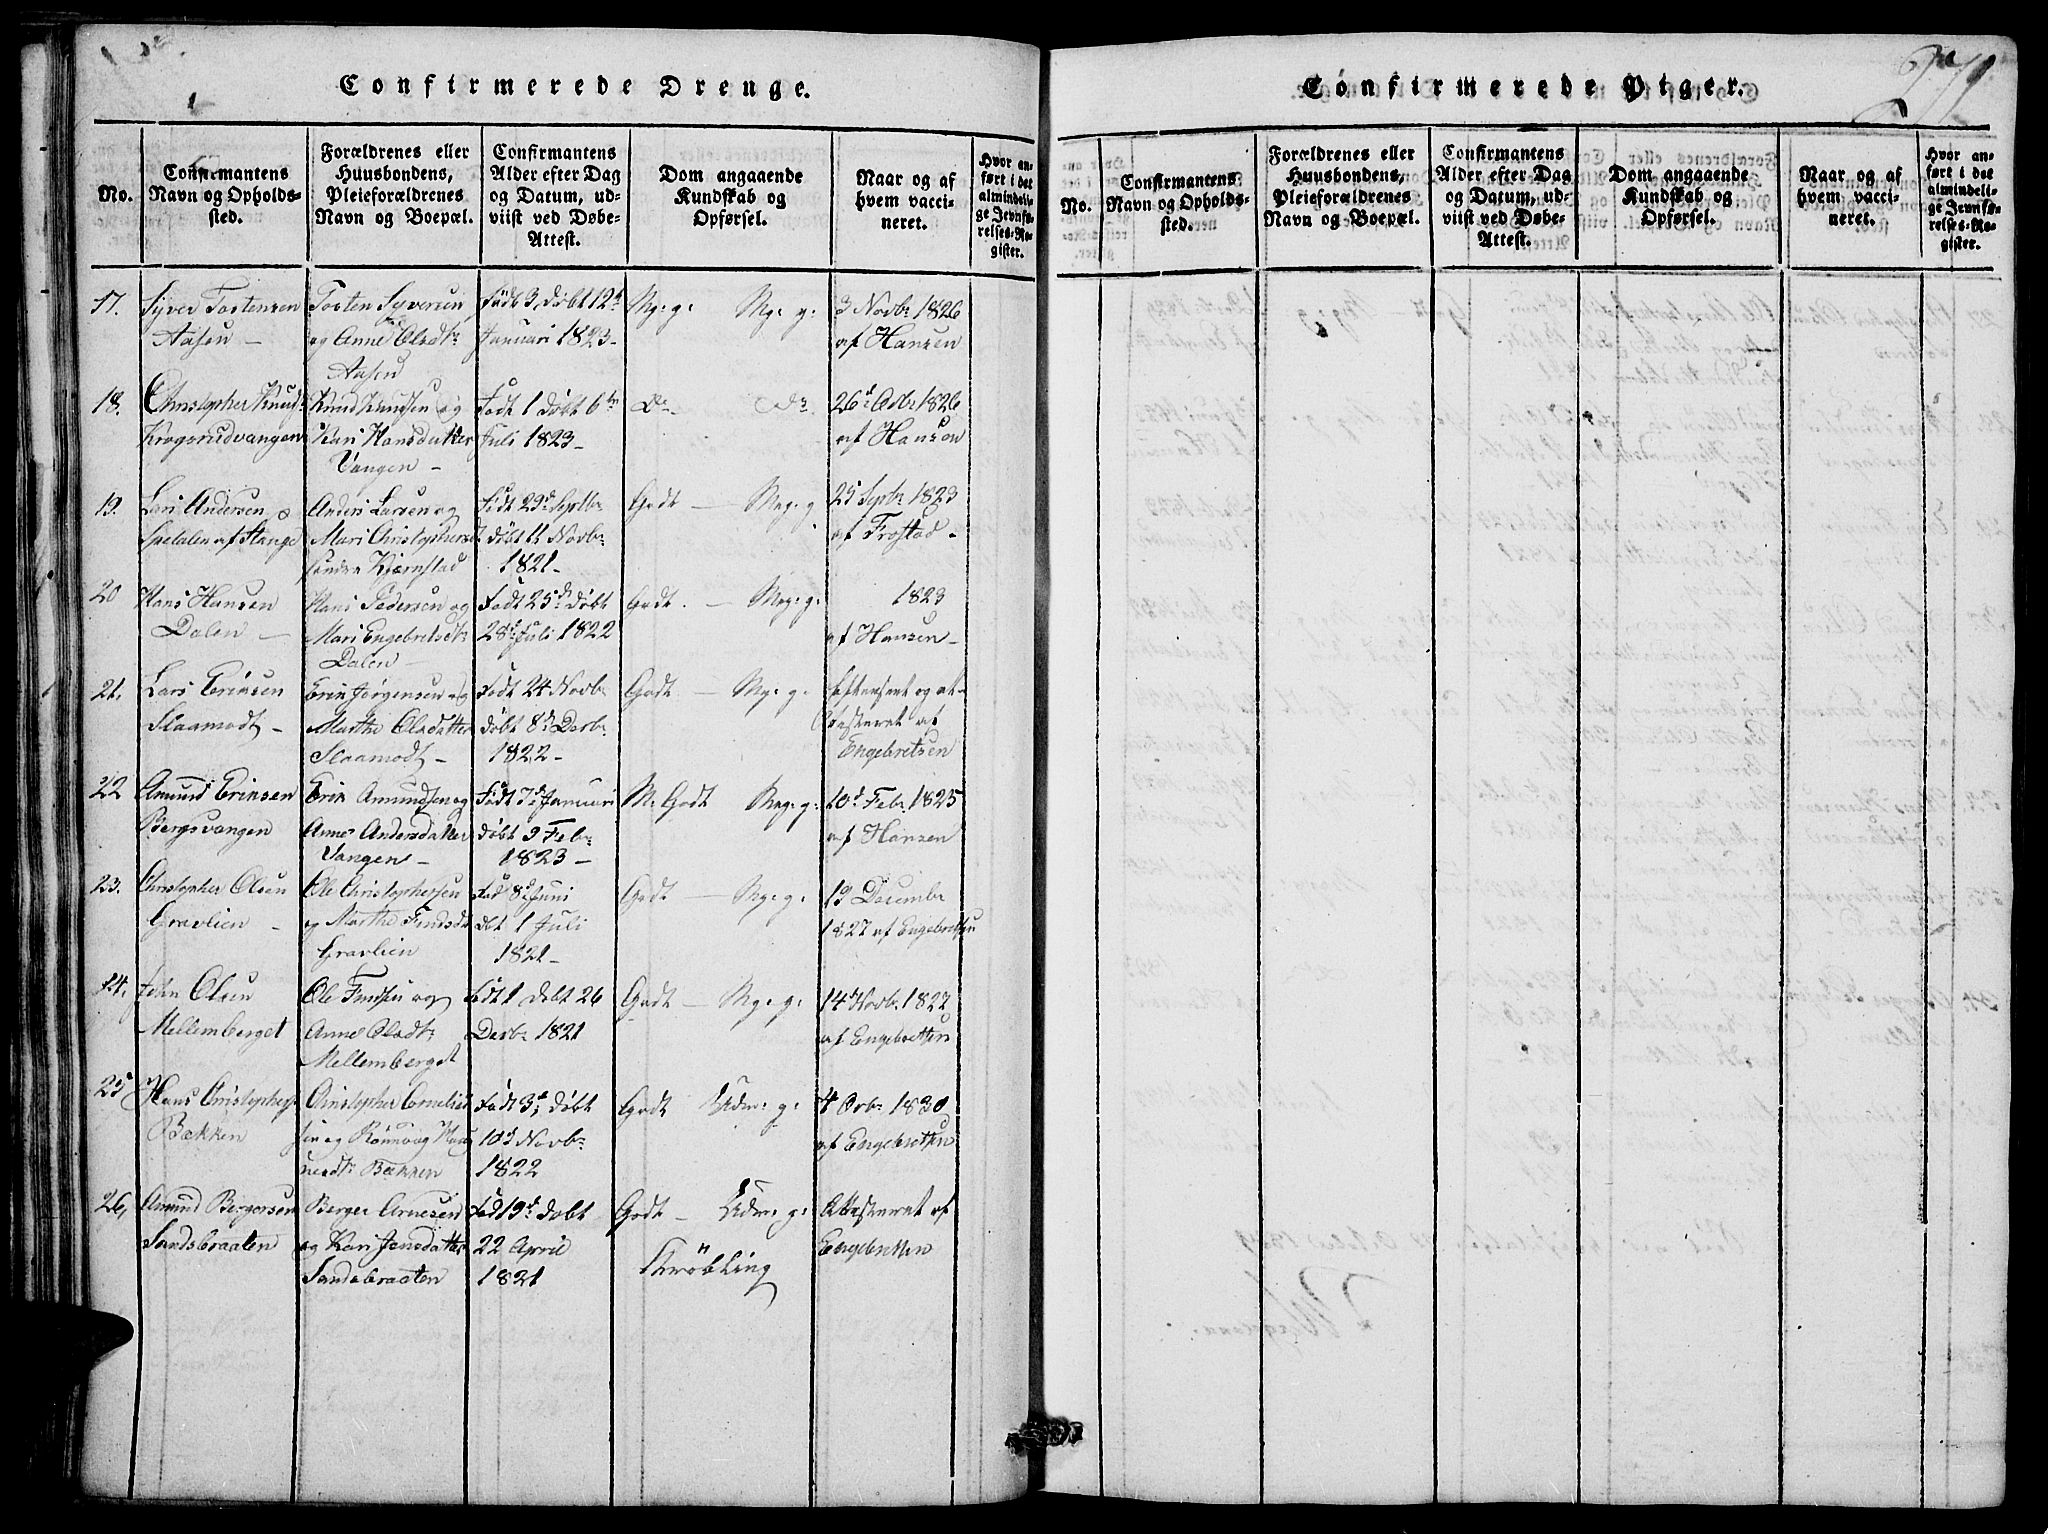 Confirmerede Drenge.
No.
Confirmantens Navn og Opholds-sted.
Forældrenes eller Huusbondens, Pleieforældrenes Navn og Boepæl.
Confirmantens Alder efter Dag og Datum, ud-viist ved Døbe-Attest.
Dom angaaende Kundskab og Opførsel.
Naar og af hvem vacci-neret.
Hvor an-ført i det almindeli-ge Jevnfø-relses-Re-gister.
17.
Syver Tostensen
Aasen –
Tosten Syversen
og Anne Olsdtr
Aasen
Født 3, Døbt 12te
Januari 1823–
Mg: g. Mg: g:
3 Novbr 1826
af Hansen
18.
Christopher Knuds
Krogsrudvangen
Knud Knudsen og
Kari Hansdatter
Vangen –
Født 1 Døbt 6te
Juli 1823–
Do. Do
26d Octbr 1826
af Hansen
19.
Lars Andersen
af Stange
Anders Larsen og
Mari Christophersd
Kjernstad
Født 29d Septbr
Døbt 11 Novbr
1821–
Godt – Meg: g
25 Septbr 1823
af Frostad –
20
Hans Hansen
Dalen –
Hans Pedersen og
Mari Engebretsdtr
Dalen –
Født 25de Døbt
28d Juli 1822
Godt. – Meg: g:
1823
af Hansen –
21.
Lars Ericksen
Slaamodt –
Erik Jørgensen og
Marthe Olsdatter
Slaamodt –
Født 24 Novbr
Døbt 8d Decbr
1822–
Godt – Mg: g:
og at-
testeret af
Engebretsen
22
Amund Ericksen
Bergsvangen
Erik Amundsen og
Anne Andersdatter
Vangen –
Født 7d Januari
Døbt 9 Febr
1823–
M: Godt Meg: g:
10d Febr. 1825
af Hansen
23.
Christopher Olsen
Gravlien –
Ole Christophersen
og Marthe Findsdtr
Gravlien
Fød 8d Juni
Døbt 1 Juli
1821–
Godt – Mg: g:
19 December
1827 af Engebretsen
24.
John Olsen
Mellemberget
Ole Findsen og
Anne Olsdtr
Mellemberget
Født 1 Døbt 26
Decbr 1821
Godt – Mg: g:
14d Novbr. 1827
af Engebretsen
25
Hans Christophers
Bækken
Christopher Cornelius
sen og Rønnaug
Bækken
Født 3d, Døbt
10d Novbr
1822
Godt Udm: g:
4 Octbr 1830
af Engebretsen
26,
Amund Bergersen
Sandsbraaten
Berger Arnesen
og Kari Jensdatter
Sandsbraaten
Fød 19d Døbt
22 April
1821
Godt – Udm: g:
Krøbling
Attesteret af
Engebretsen
Confirmerede Piger.
271
No.
Confirmantens Navn og Opholds-sted.
Forældrenes eller Huusbondens, Pleieforældrenes Navn og Boepæl.
Confirmantens Alder efter Dag og Datum, ud-viist ved Døbe-Attest.
Dom angaaende Kundskab og Opførsel.
Naar og af hvem vacci-neret.
Hvor an-ført i det almindeli-ge Jevnfø-relses-Re-gister.